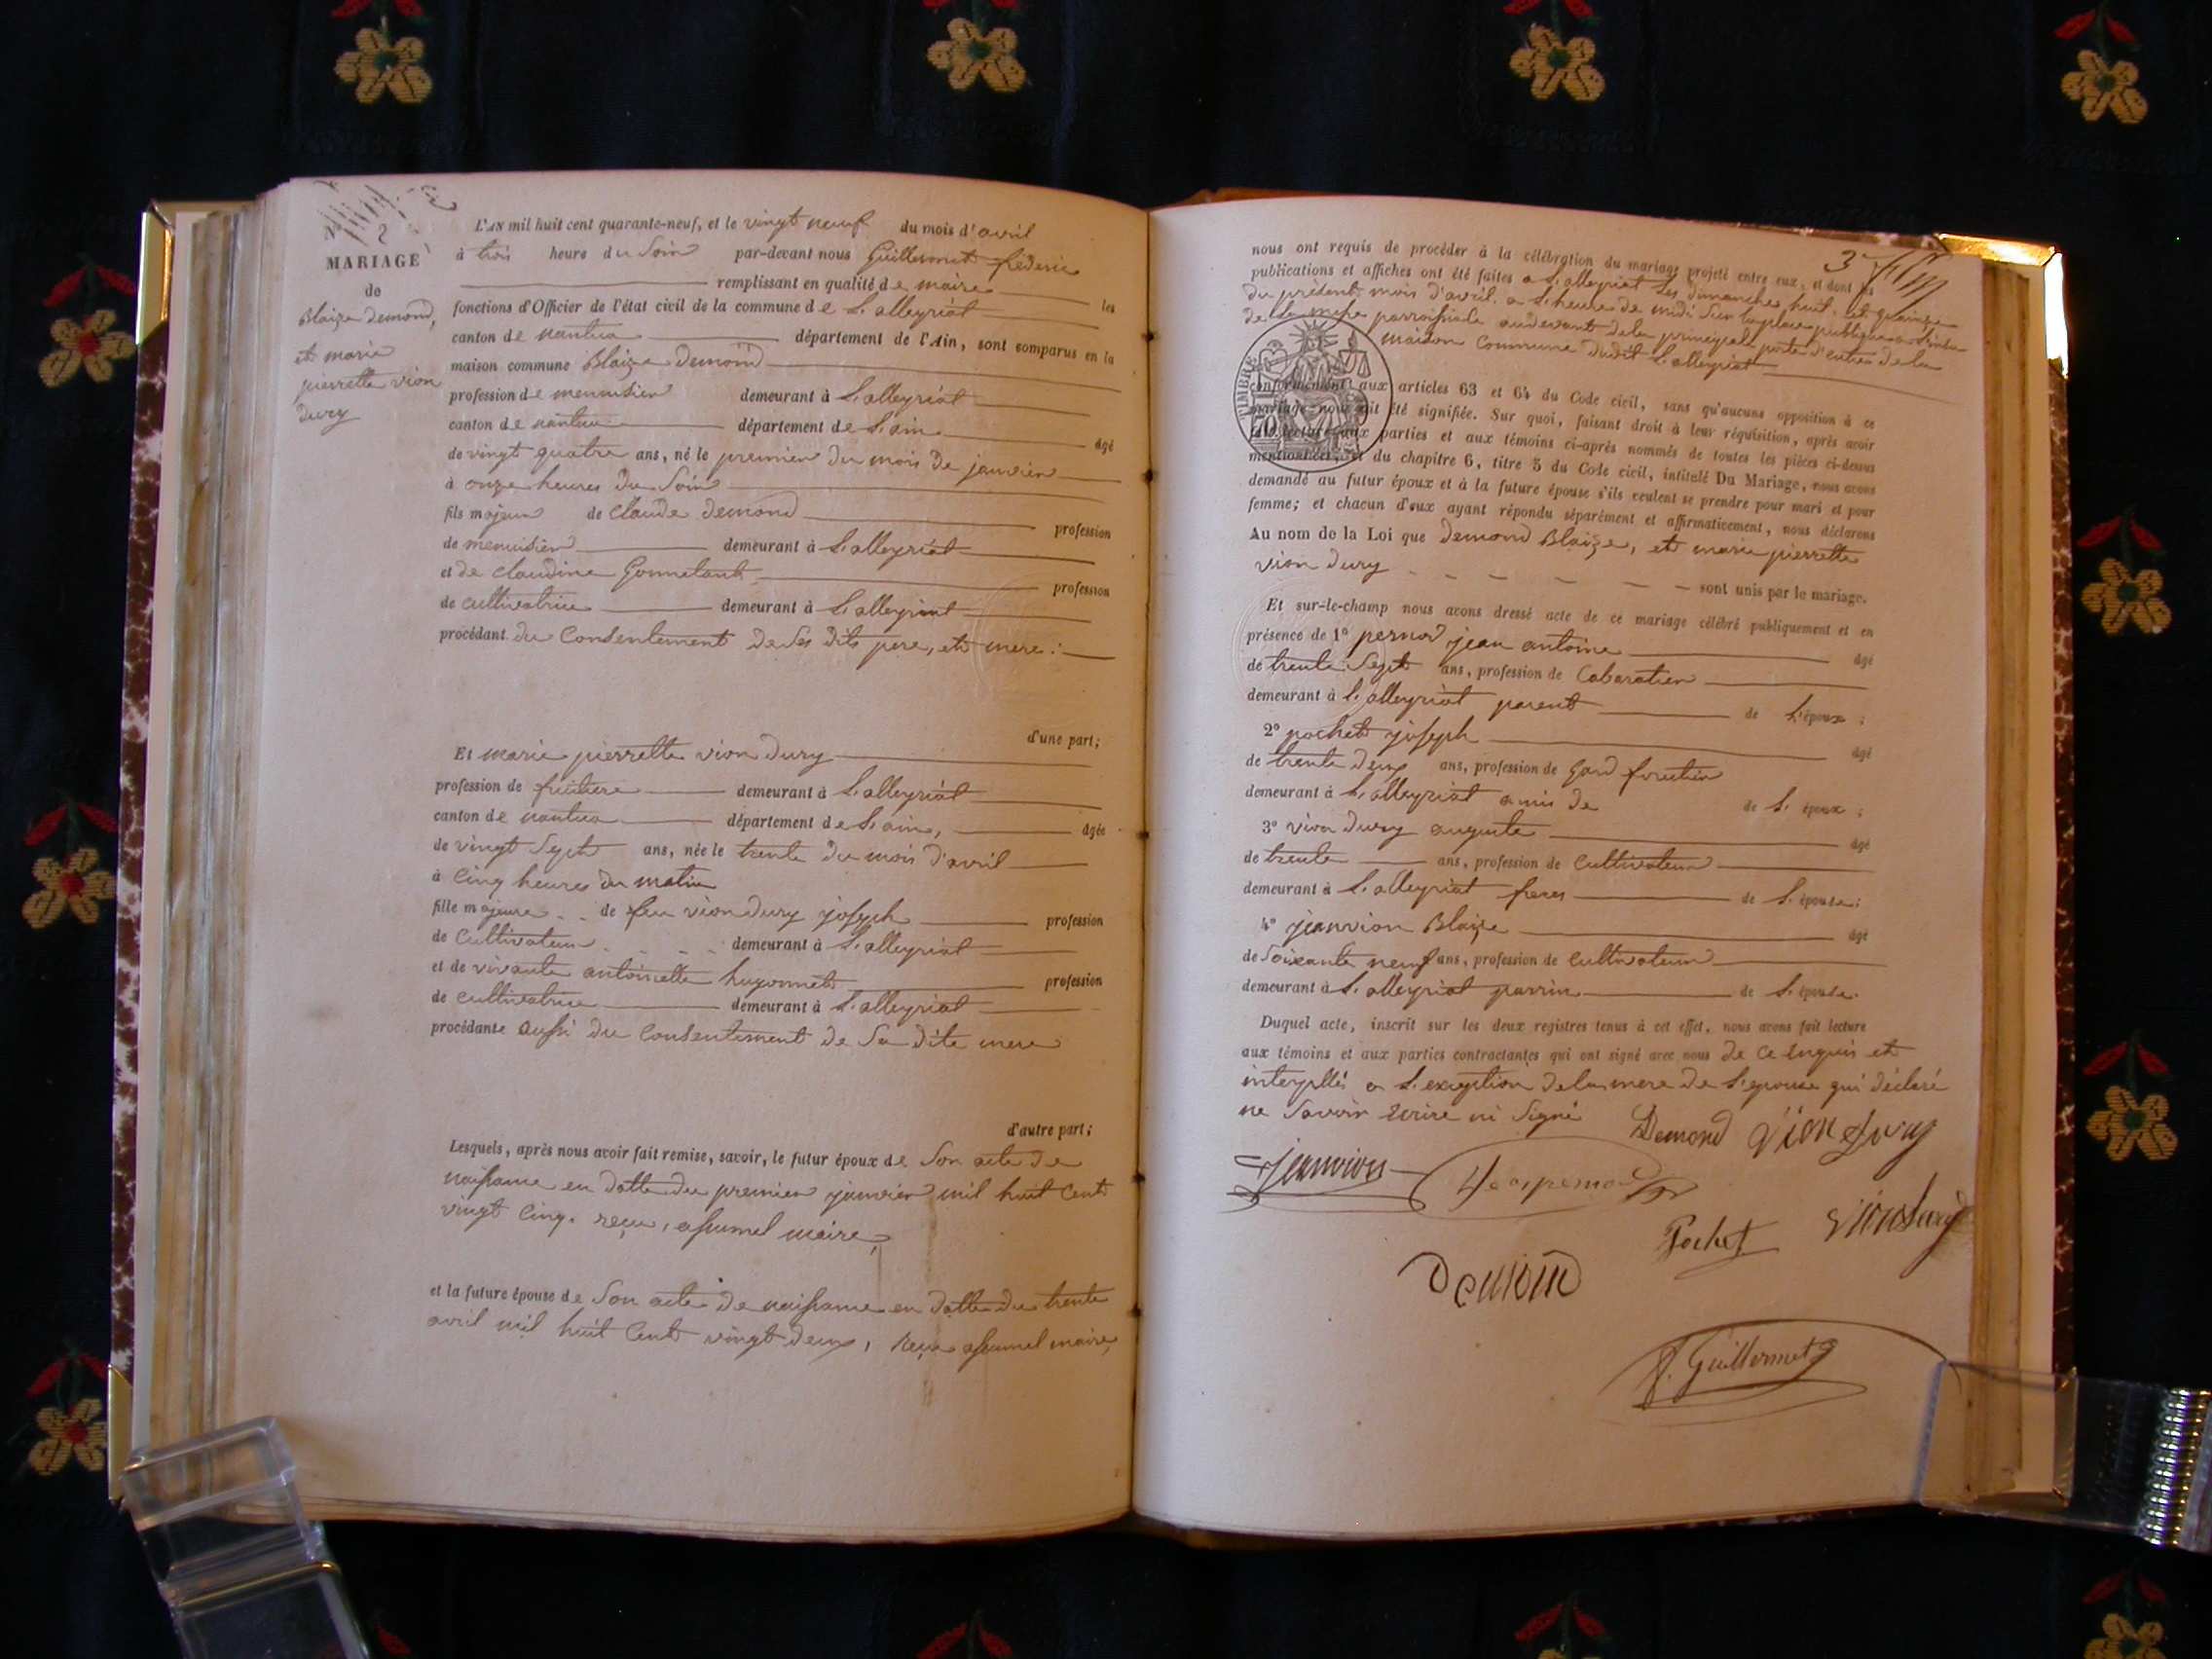 2
MARIAGE
de
Blaize demond,
et marie
pierrette vion
dury
L'AN mil huit cent quarante-neuf, et le vingt neuf du mois d'avril
à trois heure du Soir par-devant nous Guillermet frédéric
remplissant en qualité de maire les
fonctions d'Officier de l'état civil de la commune de L'alleyriat
canton de nantua département de l'Ain, sont comparus en la
maison commune Blaize demond
profession de menuisier demeurant à L'alleyriat
canton de nantua département de L'ain agé
de vingt quatre ans, né le premier du mois de janvier
à onze heures du Soir
fils majeur de Claude demond profession
de menuisier demeurant à L'alleyriat
et de Claudine Gonnetant profession
de cultivatrice demeurant à L'alleyriat
procédant du Consentement de Ses dits pere, et mere :
d'une part;
Et marie pierrette vion dury
profession de fruitiere demeurant à L'alleyriat
canton de nantua département de L'ain, agée
de vingt Sept ans, née le trente du mois d'avril
à Cinq heures du matin
fille majeure de feu vion dury joseph profession
de Cultivateur demeurant à L'alleyriat
et de vivante antoinette hugonnet profession
de Cultivatrice demeurant à L'alleyriat
procédante aussi du Consentement de Sa dite mere
d'autre part;
Lesquels, après nous avoir fait remise, savoir, le futur époux de Son acte de
naissance en datte du premier janvier mil huit Cent
vingt Cinq. reçu, maire,
et la future épouse de Son acte de naissance en datte du trente
avril mil huit Cent vingt deux, reçu maire,
3
nous ont requis de procéder à la célébration du mariage projeté entre eux, et dont les
publications et affiches ont été faites a L'alleyriat Les dimanches huit, et quinze
du présent mois d'avril. a L'heure de midi Sur la place publique a L'issue
de La messe parroissiale audevant de la principale porte d'entrée de la
maison Commune dudit L'alleyriat
TIMBRE
conformément aux articles 63 et 64 du Code civil, sans qu'aucune opposition à ce
mariage nous ait été signifiée. Sur quoi, faisant droit à leur réquisition, après avoir
fait lecture aux parties et aux témoins ci-après nommés de toutes les pièces ci-dessus
mentionnées, et du chapitre 6, titre 5 du Code civil, intitulé Du Mariage, nous avons
demandé au futur époux et à la future épouse s'ils veulent se prendre pour mari et pour
femme; et chacun d'eux ayant répondu séparément et affirmativement, nous déclarons
Au nom de la Loi que demond Blaize, et marie pierrette
vion dury sont unis par le mariage.
Et sur-le-champ nous avons dressé acte de ce mariage célébré publiquement et en
présence de 1° pernod jean antoine agé
de trente Sept ans, profession de Cabaratier
demeurant à L'alleyriat parent de L'époux ;
2° pochet joseph agé
de trente deux ans, profession de Gard forestier
demeurant à L'alleyriat amis de de L'époux ;
3° vion dury auguste agé
de trente ans, profession de Cultivateur
demeurant à L'alleyriat freres de L'épouse;
4° jeanvion Blaize agé
de Soixante neuf ans, profession de Cultivateur
demeurant à L'alleyriat parrin de L'épouse.
Duquel acte, inscrit sur les deux registres tenus à cet effet, nous avons fait lecture
aux témoins et aux parties contractantes qui ont signé avec nous de Ce Enquis et
interpellés a L'exception de la mere de L'epouse qui déclaré
ne Savoir Ecrire ni Signé
Demond Vion Dury
Jeanvion
Pochet Viondury
Demond
f. Guillermet